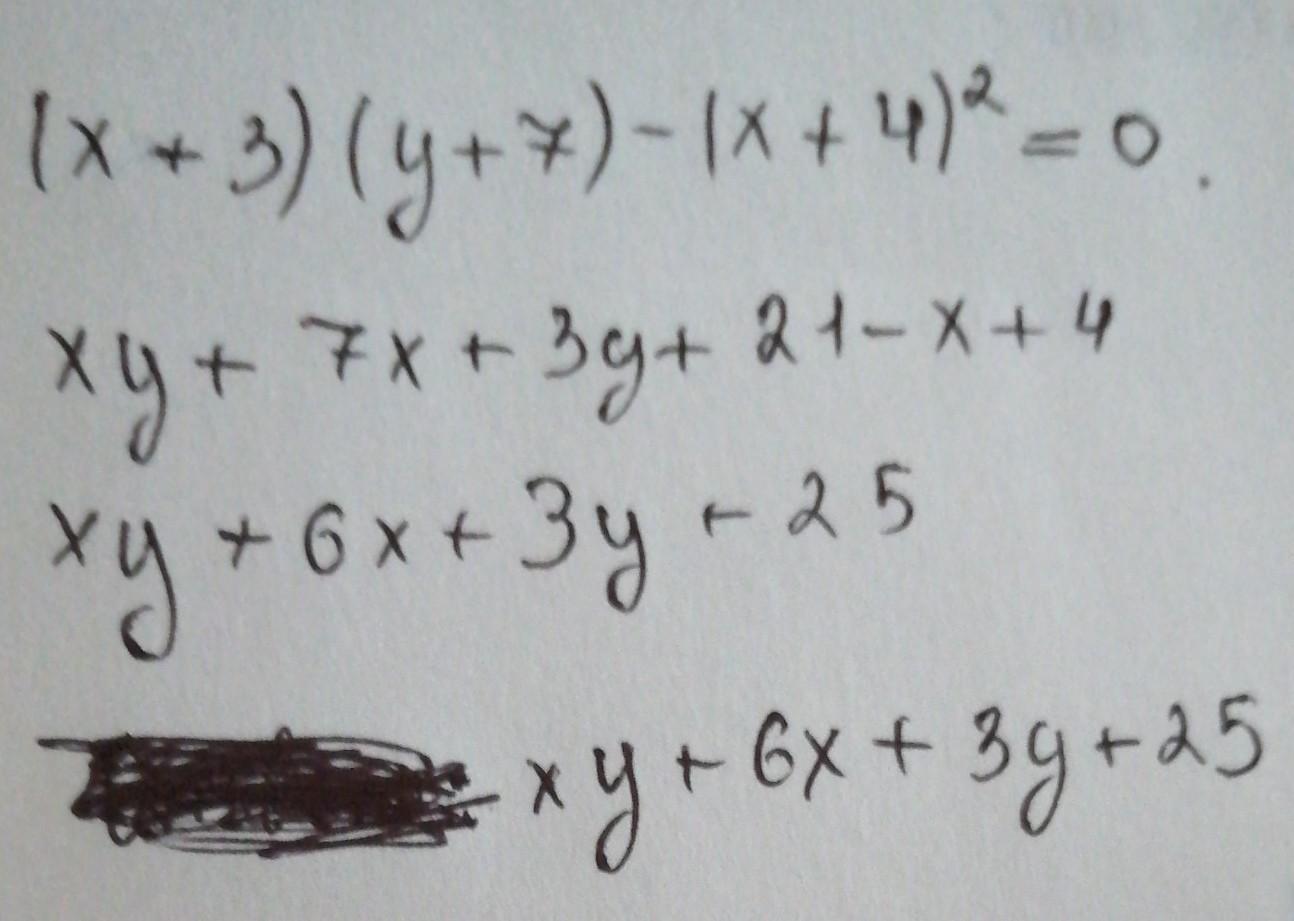 (x + 3) (y + 7) - (x + 4)² = 0.
xy + 7x + 3y + 21 - x + 4
xy + 6x + 3y + 25
xy + 6x + 3y + 25